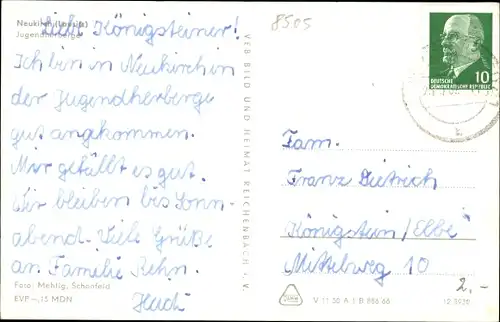 Neukirch (Lausitz)
Jugendherberge
Liebe Königsteiner!
Ich bin in Neukirch in
der Jugendherberge
gut angekommen.
Mir gefällt es gut.
Wir bleiben bis Sonn-
abend. Viele Grüße
an Familie Rehn.
Foto: Mehlig, Schönfeld
EVP –,15 MDN
VEB BILD UND HEIMAT REICHENBACH i. V.
8505
10
DEUTSCHE
DEMOKRATISCHE REPUBLIK
Fam.
Franz Dietrich
Königstein/Elbe
Mittelweg 10
2.-
V 11 30 A 1 B 886/66